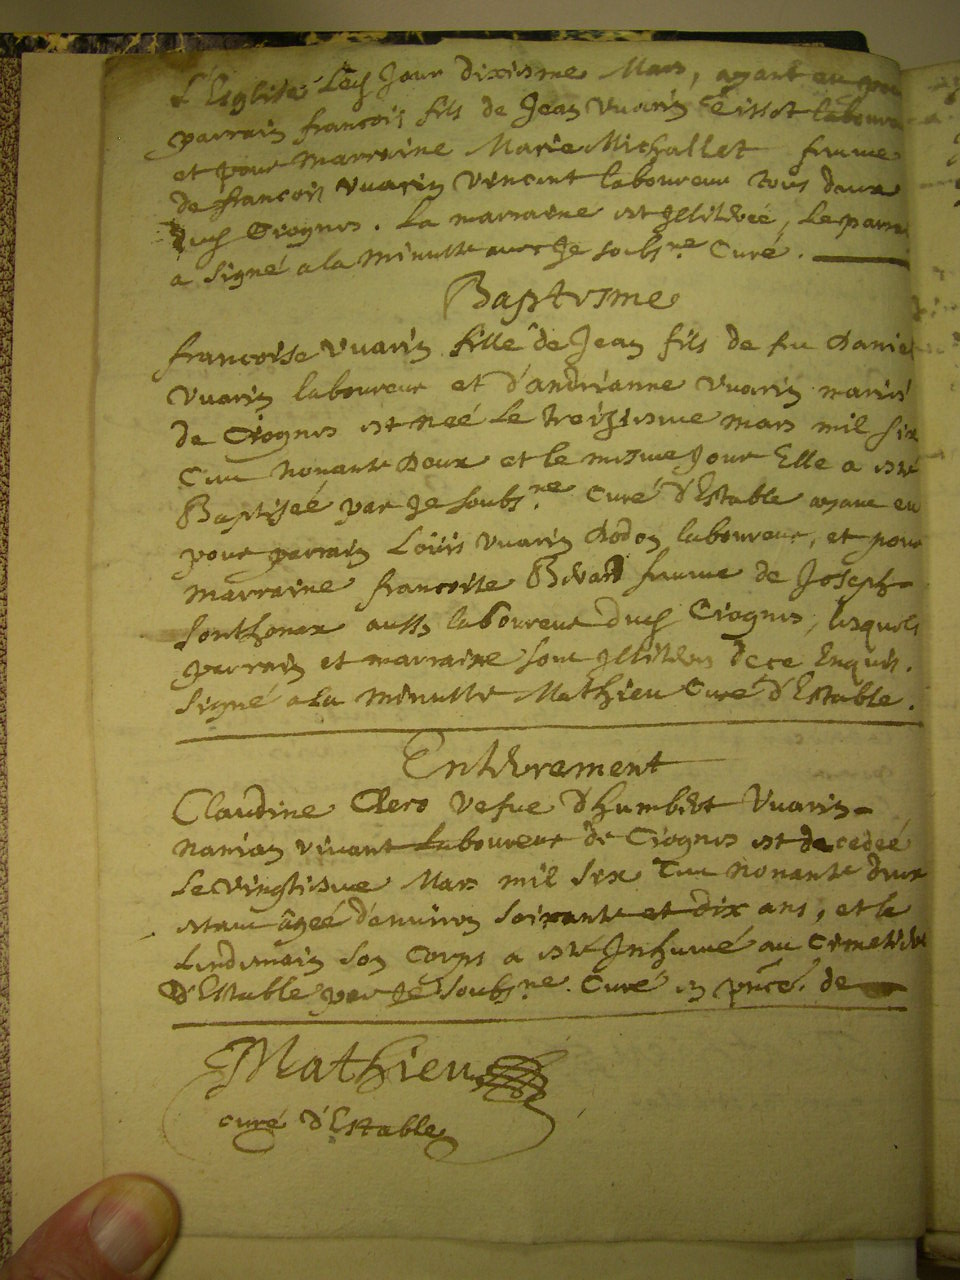 L'Esglise Led Jour dixiesme Mars, ayant eu pour
parrain francois fils de Jean Vuarin Tissot laboureur
et pour Marraine Marie Michallet femme
de francois Vuarin Vincent laboureur tous deux
dud Ciognes. La marraine est Illitéreé, Le parrain
a signé a la Minutte avec Je soubs.né Curé.
Baptesme
francoise Vuarin fille de Jean fils de feu Daniel
Vuarin laboureur et d'andrianne Vuarin mariés
de Ciognes est neé le treiziesme mars mil six
Cent Nonante Deux et le mesme Jour Elle a esté
Baptiseé par Je soubs.né Curé d'Estable ayant eu
pour parrain Loüis Vuarin Dodon laboureur, et pour
Marraine francoise femme de Joseph
Sonthonax aussy laboureur dud Ciognes, lesquels
parrain et marraine sont Illiteres de ce Enquis.
Signé a la Minutte Mathieu Curé d'Estable.
Enterrement
Claudine Clerc Vefve d'humbert Vuarin
Nanian vivant Laboureur de Ciognes est decedeé
Le vingtiesme Mars mil Six Cent Nonante deux
estant âgeé d'environ soixante et dix ans, et le
Lendemain son Corps a esté Inhumé au Cimetiere
d'Estable par Je soubs.né Curé en pnce. de
Mathieu
curé d'Estable